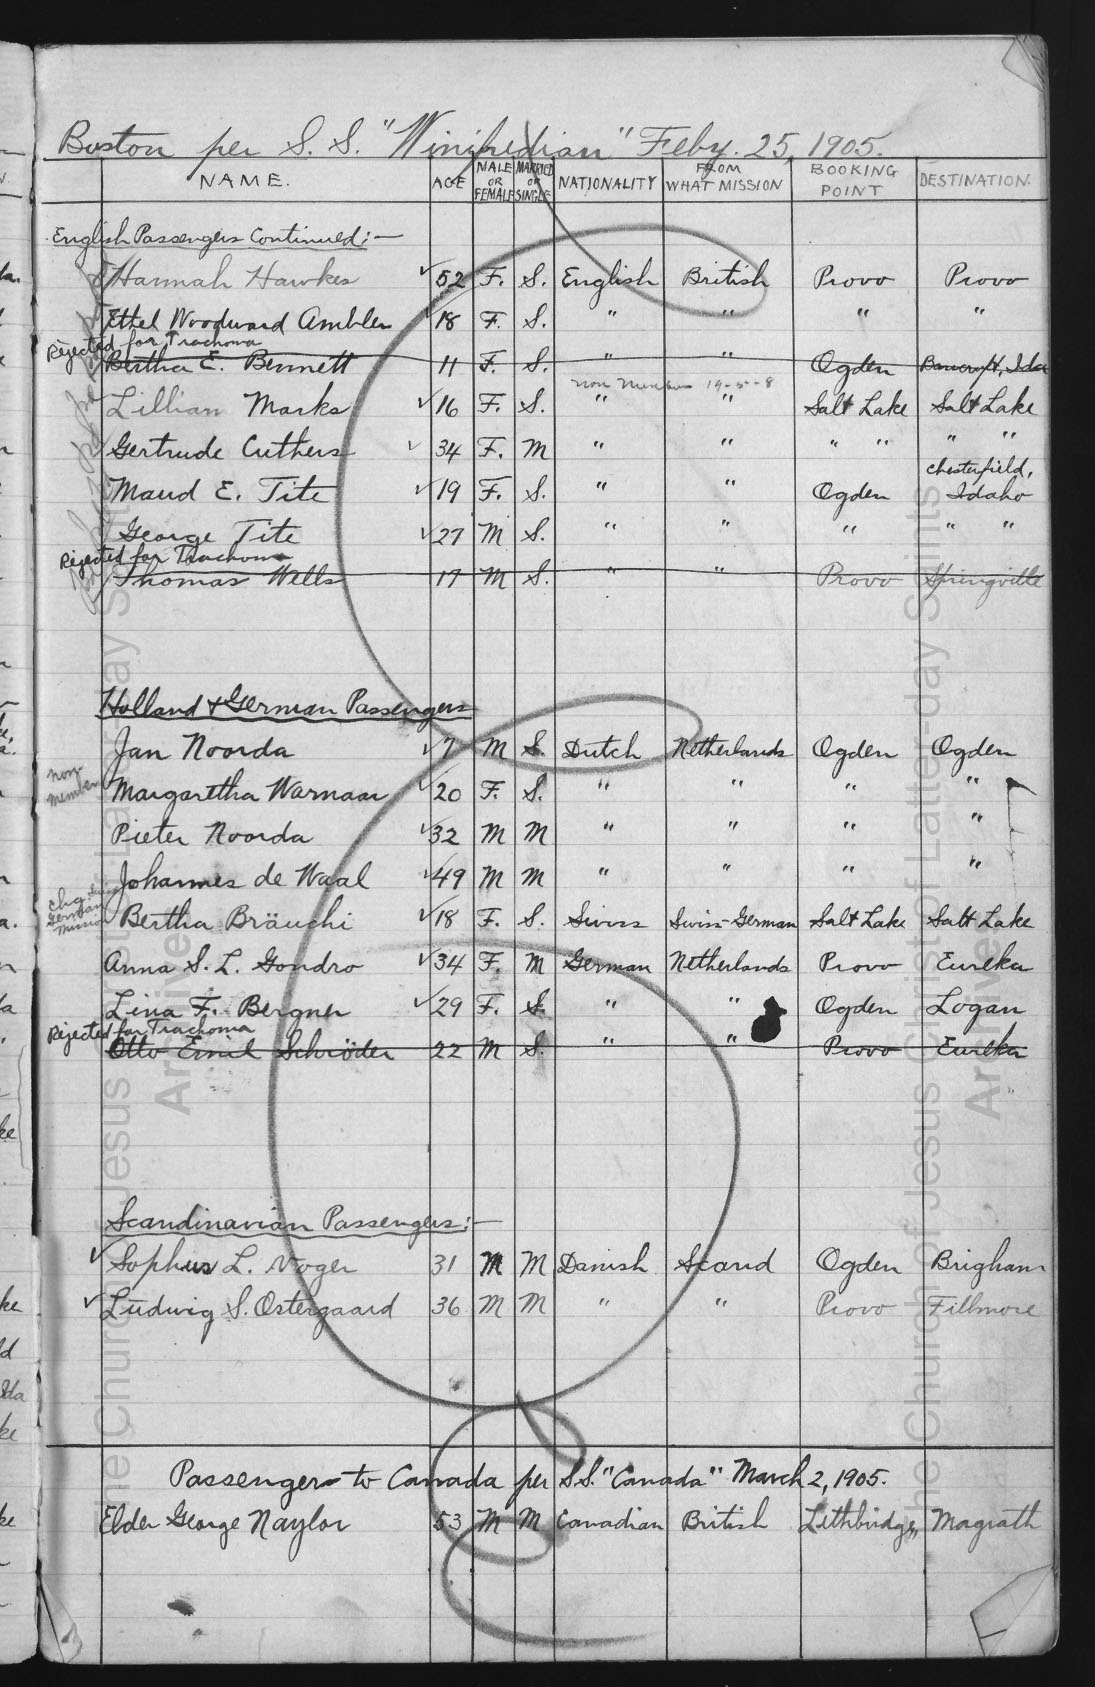 Boston per S. S. "Winifredian" Feby. 25, 1905.
NAME. AGE MALE OR FEMALE MARRIED OR SINGLE NATIONALITY FROM WHAT MISSION BOOKING POINT DESTINATION.
English Passengers Continued:—
Hannah Hawkes ✓ 52 F. S. English British Provo Provo
Ethel Woodward Ambler ✓ 18 F. S. " " " "
Rejected for Trachoma
Bertha E. Bennett 11 F. S. " " Ogden Bancroft, Ida
Non Member 19-5-8
Lillian Marks ✓ 16 F. S. " " Salt Lake Salt Lake
Gertrude Cuthers ✓ 34 F. M " " " " " "
Maud E. Tite ✓ 19 F. S. " " Ogden Chesterfield, Idaho
George Tite ✓ 27 M S. " " " " "
Rejected for Trachoma
Thomas Wells 17 M S. " " Provo Springville
Holland & German Passengers
Jan Noorda ✓ 7 M S. Dutch Netherlands Ogden Ogden
non-member
Margaretha Warnaar ✓ 20 F. S. " " " "
Pieter Noorda ✓ 32 M M " " " "
Johannes de Waal ✓ 49 M M " " " "
chg. Swiss German Mission
Bertha Bräuchi ✓ 18 F. S. Swiss Swiss-German Salt Lake Salt Lake
Anna S. L. Gondro ✓ 34 F. M German Netherlands Provo Eureka
Lina F. Bergner ✓ 29 F. S. " " Ogden Logan
Rejected for Trachoma
Otto Emil Schröder 22 M S. " " Provo Eureka
Scandinavian Passengers:—
✓ Sophus L. Noger 31 M M Danish Scand Ogden Brigham
✓ Ludwig S. Ostergaard 36 M M " " Provo Fillmore
Passengers to Canada per S.S. "Canada" March 2, 1905.
Elder George Naylor 53 M M Canadian British Lethbridge, Magrath
The Church of Jesus Christ of Latter-day Saints
Archives
The Church of Jesus Christ of Latter-day Saints
Archives